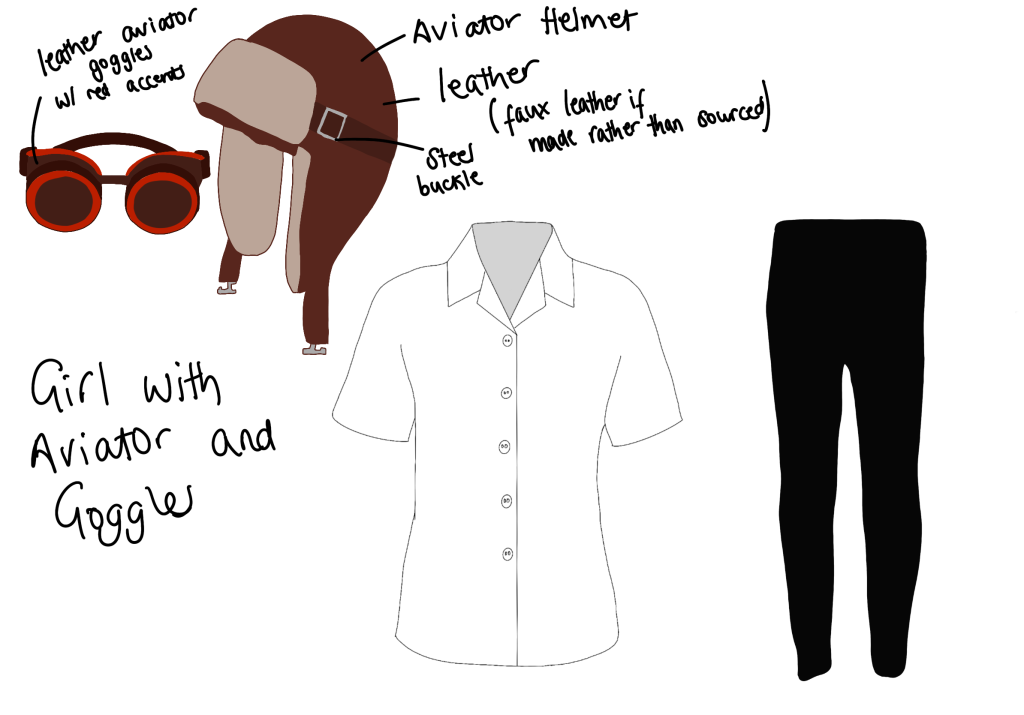 leather aviator
goggles
w/ red accents
Aviator Helmet
leather
(faux leather if
made rather than sourced)
Steel
buckle
Girl with
Aviator and
Goggles